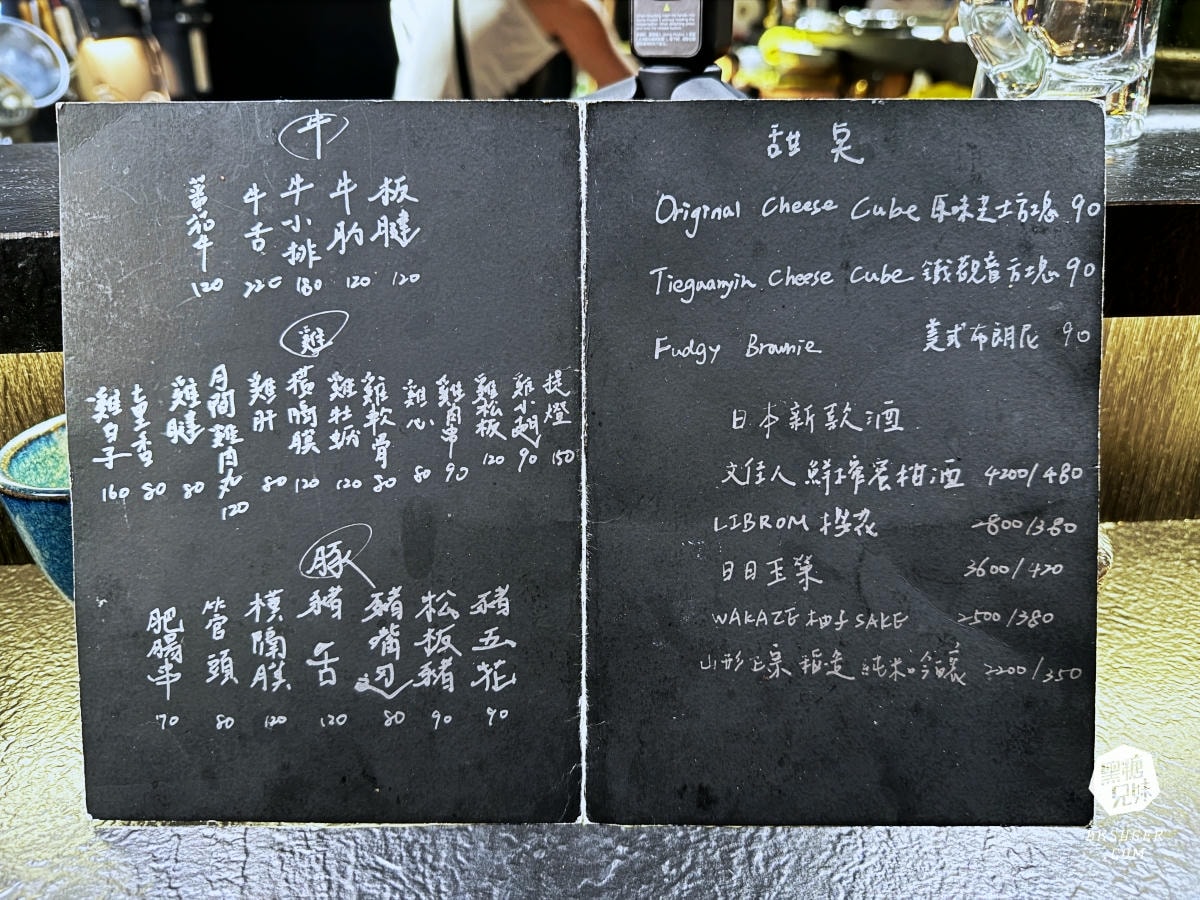 牛
蕃茄牛 120
牛舌 220
牛小排 180
牛肋 120
板腱 120
雞
雞白子 160
七里香 80
雞腱 80
月間雞肉丸 120
雞肝 80
橫隔膜 120
雞牡蠣 120
雞軟骨 80
雞心 80
雞肉串 90
雞松板 120
雞小 90
提燈 150
豚
肥腸串 70
管頭 80
橫隔膜 120
豬舌 120
豬嘴 80
松板豬 90
豬五花 90
甜 桌
Original Cheese Cube 原味芝士方塊 90
Tieguanyin Cheese Cube 鐵觀音方塊 90
Fudgy Brownie 美式布朗尼 90
日本新款酒
文佳人 鮮榨蜜柑酒 4200/480
LIBROM 橙花 2800/380
日日 玉榮 3600/420
WAKAZE 柚子 SAKE 2500/380
山形正宗 稻造 純米吟釀 2200/350
黑糖兄妹
.COM